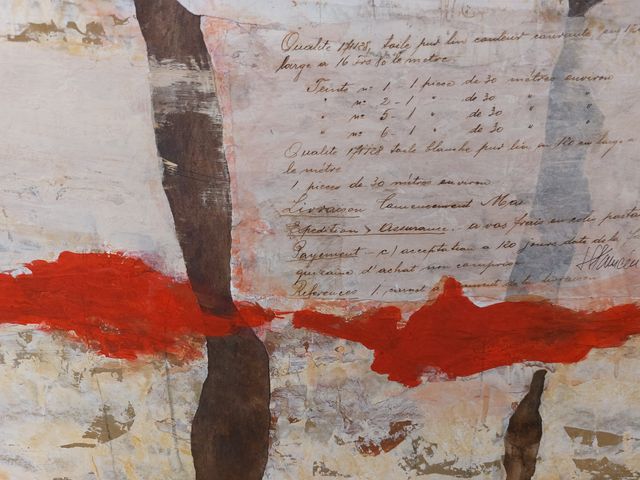 Qualité 17128, toile pur lin couleur courante en 120
large a 16 frs 10 le mètre
Teinte nº 1 - 1 pièce de 30 mètres environ
" nº 2 - 1 " de 30 " "
" nº 5 - 1 " de 30 " "
" nº 6 - 1 " de 30 " "
Qualité 17128 toile blanche pur lin en 120 en large a
le mètre
1 pièces de 30 mètres environ
Livraison Commencement Mai
Expedition & Assurance a vos frais en colis
Payement - c/ acceptation a 120 jours date de la
quinzaine d'achat non compris
References 1 carnet